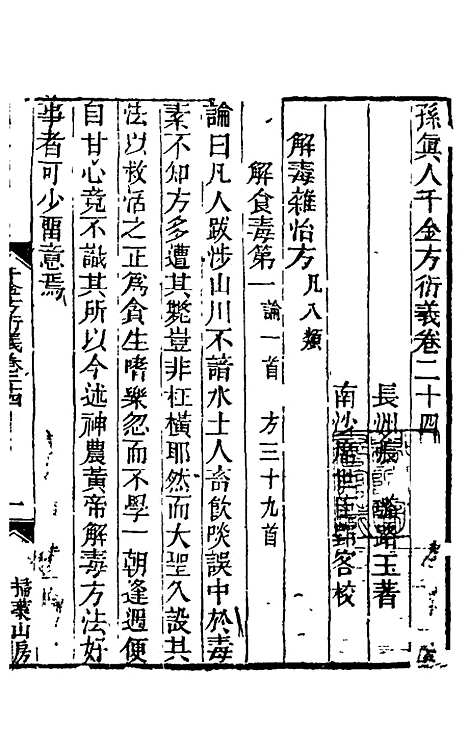 孫真人千金方衍義卷二十四
長洲張璐路玉著
南沙席世臣郢客校
解毒雜怡方凡八類
解食毒第一論一首 方三十九首
論曰凡人跋涉山川不諳水土人畜飲啖誤中於毒
素不知方多遭其斃豈非枉橫耶然而大聖久設其
法以救活之正為貪生嗜樂忽而不學一朝逢遇便
自甘心竟不識其所以今述神農黃帝解毒方法好
事者可少留意焉
千金方衍義卷二十四
一
掃葉山房